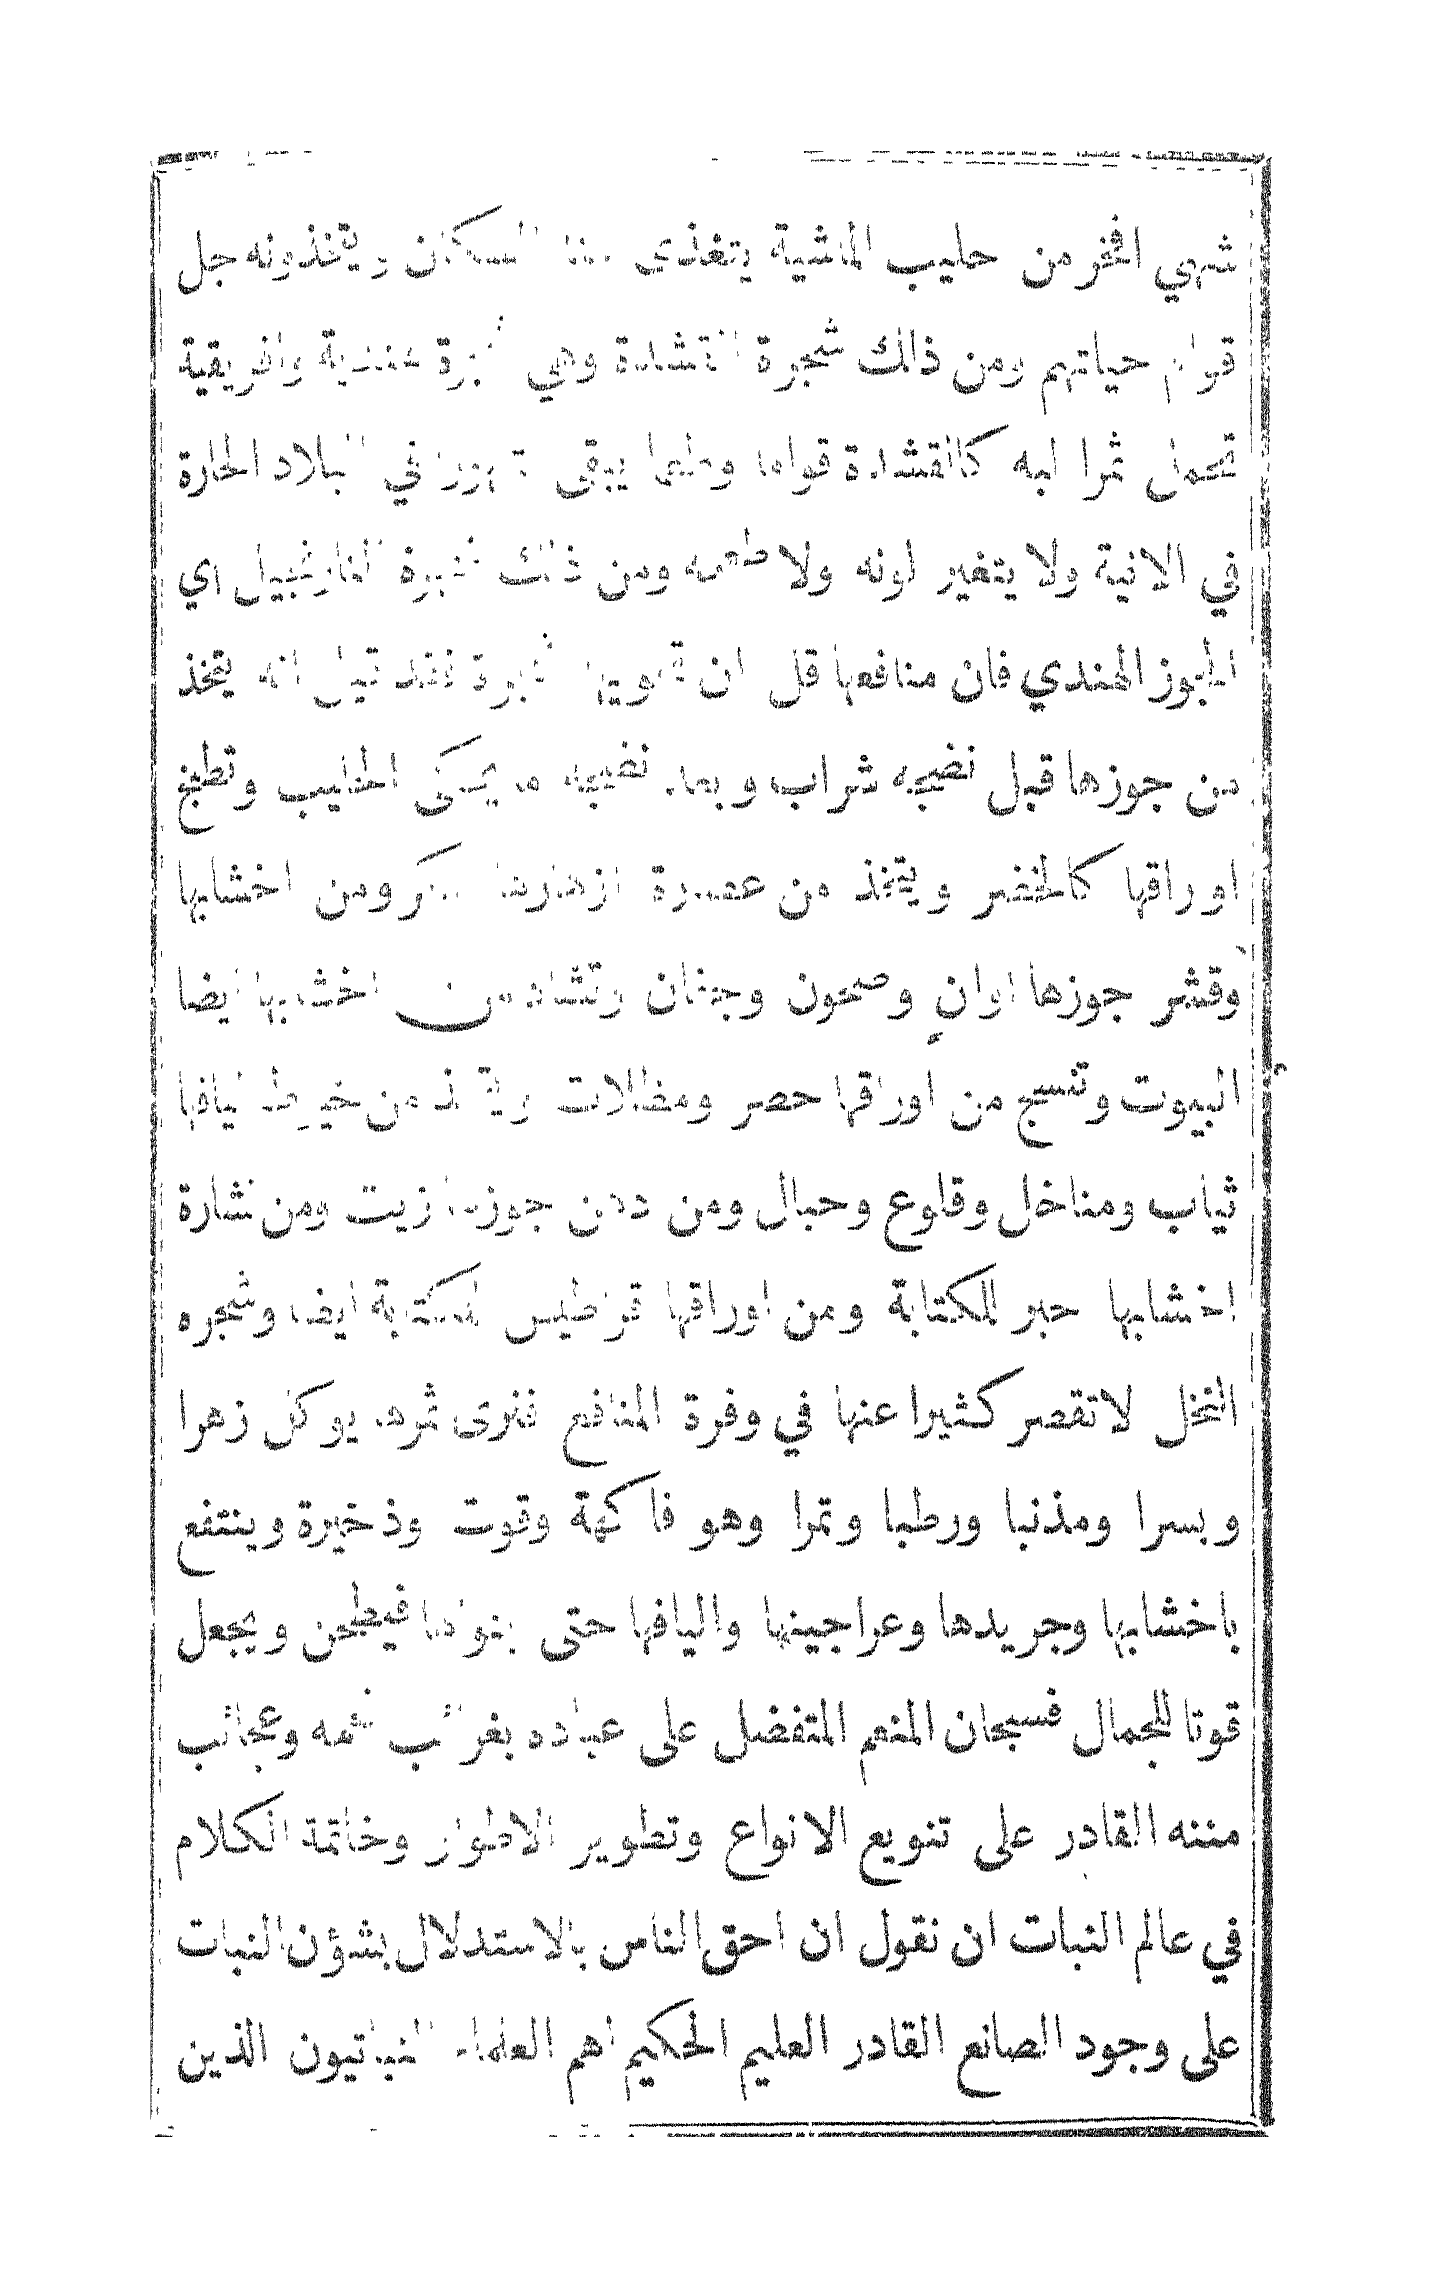 شهي افخر من حليب الماشية يتغذى منه السكان ويتخذونه جل
قوام حياتهم ومن ذلك شجرة القشدة وهي شجرة هندية وافريقية
تحمل ثمرا لبه كالقشدة قواما وطعما يبقى في البلاد الحارة
في الانية ولا يتغير لونه ولا طعمه ومن ذلك شجرة النارجيل اي
الجوز الهندي فان منافعها قل ان تحويها شجرة فقد قيل انه يتخذ
من جوزها قبل نضجه شراب وبعد نضجه ما يحكى الحليب وتطبخ
اوراقها كالخضر ويتخذ من عصارة ازهارها سكر ومن اخشابها
وقشر جوزها اوانٍ وصحون وجفان وتشاد من اخشابها ايضا
البيوت وتنسج من اوراقها حصر ومظلات ويتخذ من خيوط ليافها
ثياب ومناخل وقلوع وحبال ومن دهن جوزها زيت ومن نشارة
اخشابها حبر للكتابة ومن اوراقها قرطيس للكتابة ايضا وشجره
النخل لا تقصر كثيرا عنها في وفرة المنافع فنرى ثمرها يوكل زهرا
وبسرا ومذنبا ورطبا وتمرا وهو فاكهة وقوت وذخيرة وينتفع
باخشابها وجريدها وعراجينها واليافها حتى بنواها فيطحن ويجعل
قوتا للجمال فسبحان المنعم المتفضل على عباده بغرائب نعمه وعجائب
مننه القادر على تنويع الانواع وتطوير الاطوار وخاتمة الكلام
في عالم النبات ان نقول ان احق الناس بالاستدلال بشؤن النبات
على وجود الصانع القادر العليم الحكيم اهم العلماء النباتيون الذين